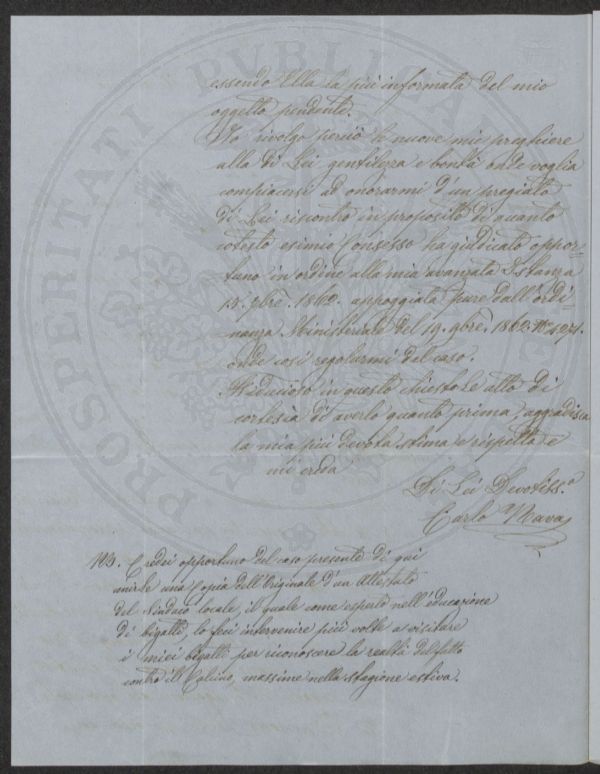 essendo Ella la più informata del mio
oggetto pendente.
Mi rivolgo perciò le nuove mie preghiere
alla di Lei gentilezza e bontà onde voglia
compiacersi ad onorarmi d'un pregiato
di Lei riscontro in proposito di quanto
cotesto esimio Consesso ha giudicato oppor-
tuno in ordine alla mia avanzata Istanza
15. 9bre. 1862. appoggiata pure dall'ordi-
nanza Ministeriale del 19. 9bre. 1862. N.
onde così regolarmi del caso.
Fiducioso in questo chiestole atto di
cortesia di averlo quanto prima, aggradisca
la mia più devota stima e rispetto e
mi creda
Di Lei Devotiss.o
Carlo Nava
NB. Credei opportuno del caso presente di qui
unirle una Copia dell'Originale d'un Attestato
del Sindaco locale, il quale come esperto nell'educazione
di bigatti, lo feci intervenire più volte a visitare
i miei bigatti per riconoscere la realtà del fatto
contro il Calcino, massime nella stagione estiva.
PROSPERITATI PVBLICAE